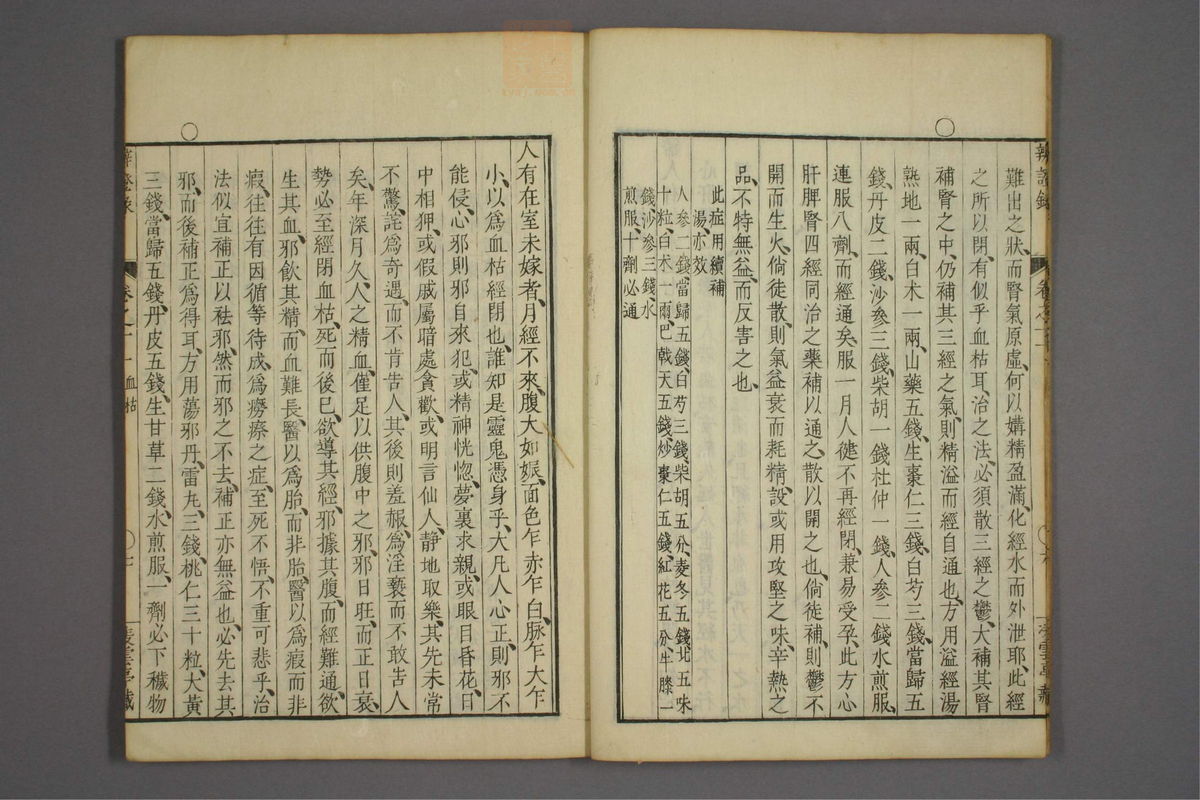 難出之狀、而腎氣原虛、何以媾精盈滿、化經水而外泄耶、此經
之所以閉、有似乎血枯耳、治之法、必須散三經之鬱、大補其腎
補腎之中、仍補其三經之氣、則精溢而經自通也、方用溢經湯
熟地一兩、白朮一兩、山藥五錢、生棗仁三錢、白芍三錢、當歸五
錢、丹皮二錢、沙參三錢、柴胡一錢、杜仲一錢、人參二錢、水煎服、
連服八劑、而經通矣、服一月人健、不再經閉、兼易受孕、此方心
肝脾腎四經同治之藥、補以通之、散以開之也、倘徒補、則鬱不
開而生火、倘徒散、則氣益衰而耗精、設或用攻堅之味、辛熱之
品、不特無益、而反害之也、
此症用續補
湯、亦效
人參二錢、當歸五錢、白芍三錢、柴胡五分、麥冬五錢、北五味
十粒、白朮一兩、巴戟天五錢、炒棗仁五錢、紅花五分、牛膝一
錢、沙參三錢、水
煎服、十劑必通
人有在室未嫁者、月經不來、腹大如娠、面色乍赤乍白、脉乍大乍
小、以爲血枯經閉也、誰知是靈鬼憑身乎、大凡人心正、則邪不
能侵、心邪則邪自來犯、或精神恍惚、夢裏求親、或眼目昏花、日
中相狎、或假戚屬暗處貪歡、或明言仙人、靜地取樂、其先未常
不驚、詫爲奇遇、而不肯告人、其後則羞赧、爲淫褻而不敢告人
矣、年深月久、人之精血、僅足以供腹中之邪、邪日旺、而正日衰、
勢必至經閉血枯、死而後已、欲導其經、邪據其腹、而經難通、欲
生其血、邪飲其精、而血難長、醫以爲胎、而非胎、醫以爲瘕而非
瘕、往往有因循等待、成爲癆瘵之症、至死不悟、不重可悲乎、治
法似宜補正以祛邪、然而邪之不去、補正亦無益也、必先去其
邪、而後補正爲得耳、方用蕩邪丹、雷丸三錢、桃仁三十粒、大黃
三錢、當歸五錢、丹皮五錢、生甘草二錢、水煎服、一劑必下穢物
卷之十一 血枯